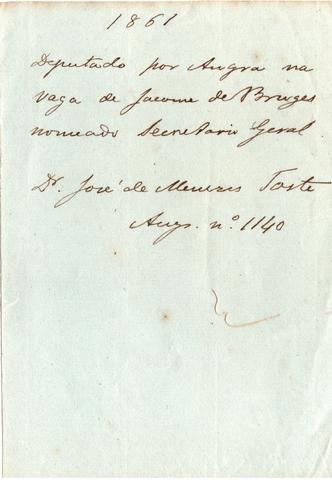 1861
Deputado por Angra na
vaga de Jacome de Bruges
nomeado Secretario Geral
Dr. José de Menezes Toste
Ang. nº. 1140